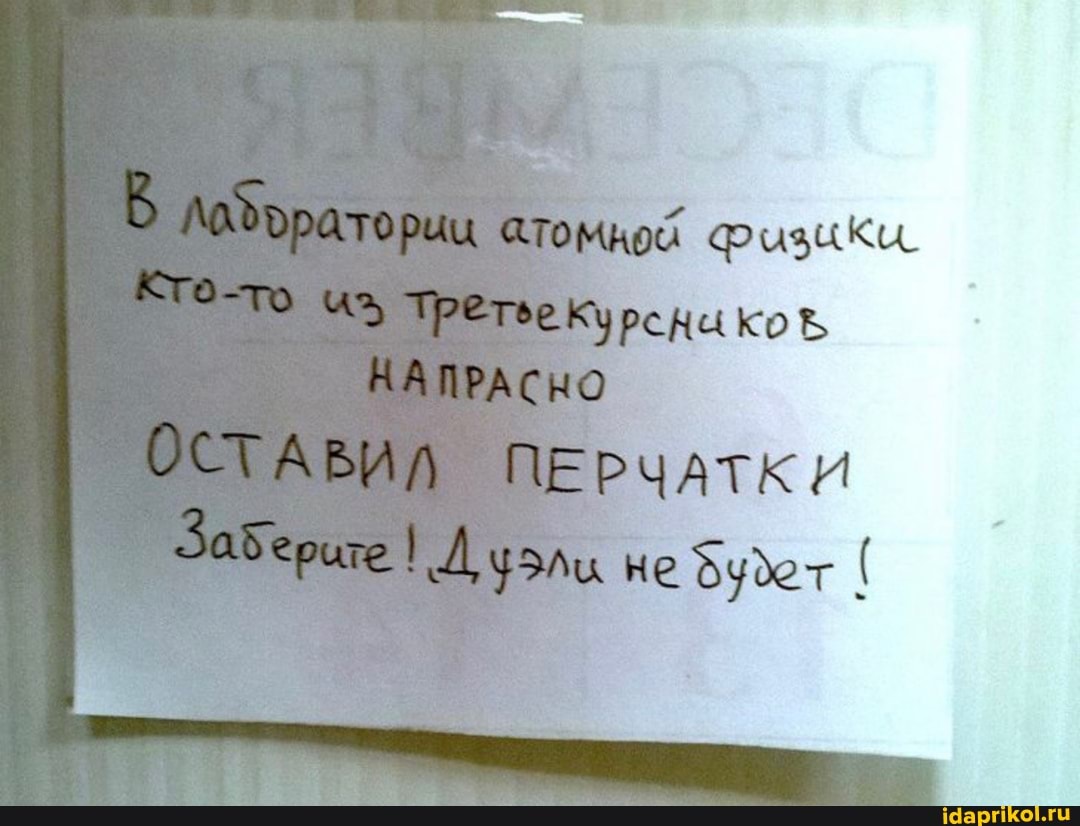 DECEMBER
В лаборатории атомной физики
кто-то из третьекурсников
НАПРАСНО
ОСТАВИЛ ПЕРЧАТКИ
Заберите! Дуэли не будет!
idaprikol.ru